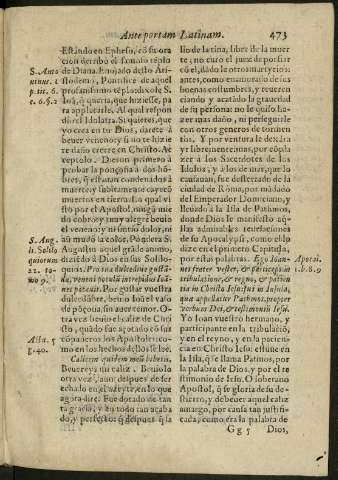 Ante portam Latinam. 473
Estando en Epheso, cō su ora
cion derribó el famoso tēplo
S. Anto
de Diana. Enojado desto Ari-
ninus. 1
stodemo, Pontifice de aquel
p. tit. 6.
c. 6. §. 2
q̄, queria, que hiziesse, pa
ra applacarle. Al qual respon
dio el Idolatra. Si quieres, que
yo crea en tu Dios, darete à
beuer veneno: y si no te hizie
re daño creere en Christo. Ac
ceptolo. Dieron primero à
probar la ponçoña a dos hō-
bres, q̄ estauan condenados à
muerte: y subitamente cayerō
muertos en tierra. Lo qual vi
sto por el Apostol, ningū mie
do cobro, y muy alegre beuio
el veneno: y ni sintio dolor, ni
S. Aug.
au mudò la color. Pondera S.
li. Solilo
Augustin aquel grāde animo,
quiorum
diziēdo à Dios en sus Solilo-
22. to-
quios. Pro tua dulcedine gustā-
mo 9.
da, veneni poculū intrepidus Ioā-
nes potauit. Por gustar vuestra
dulcedūbre, beuio Ioā el vaso
de pōçoña, sin auer temor. O-
tra vez beuio el caliz de Chri
sto, quādo fue açotado cō sus
Actu. 5
cōpañeros los Apostoles: co-
g. 40.
mo en los hechos dellos se lee.
Calicem quidem meū bibetis.
Beuereys mi caliz. Beuiolo
otra vez, aun despues de ser
echado en el azeyte, en lo que
agora dire. Fue dotado de tan
ta gracia, y en todo tan acaba
do, y perfecto: q̄ despues q̄ la
lio de la tina, libre de la muer
te, no curo el juez de porfiar
cō el, dado le otros martyrios:
antes, como enamorado de sus
buenas costumbres, y reueren
ciando y acatādo la grauedad
de su persona: no le quiso ha-
zer mas daño, ni perseguirle
con otros generos de tormen
tos. Y por ventura le dexàra
yr libremente: mas, por cōpla
zer à los Sacerdotes de los
Idolos, y a los de mas, que lo
causauan, fue desterrado de la
ciudad de Roma, por mādado
del Emperador Domiciano, y
lleuado à la Isla de Pathmos,
donde Dios le manifesto aq̄-
llas admirables reuelationes
de su Apocalypsi, como el lo
dize en el primero Capitulo,
por estas palabras. Ego Ioan-
Apocal.
nes frater vester, & particeps in
1. b. 8. 9
tribulatione, & regno, & patien
tia in Christo Iesu: fui in Insula,
qua appellatur Pathmos, propter
verbum Dei, & testimonium Iesu.
Yo Ioan vuestro hermano, y
participante en la tribulació,
y en el reyno, y en la pacien-
cia en Christo Iesu: estuue en
la Isla, q̄ se llama Patmos, por
la palabra de Dios, y por el te
stimonio de Iesu. O soberano
Apostol, q̄ se gloria de su de-
stierro, y debeuer aquel caliz
amargo, por causa tan justifi-
cada, como era la palabra de
G g 5 Dios,